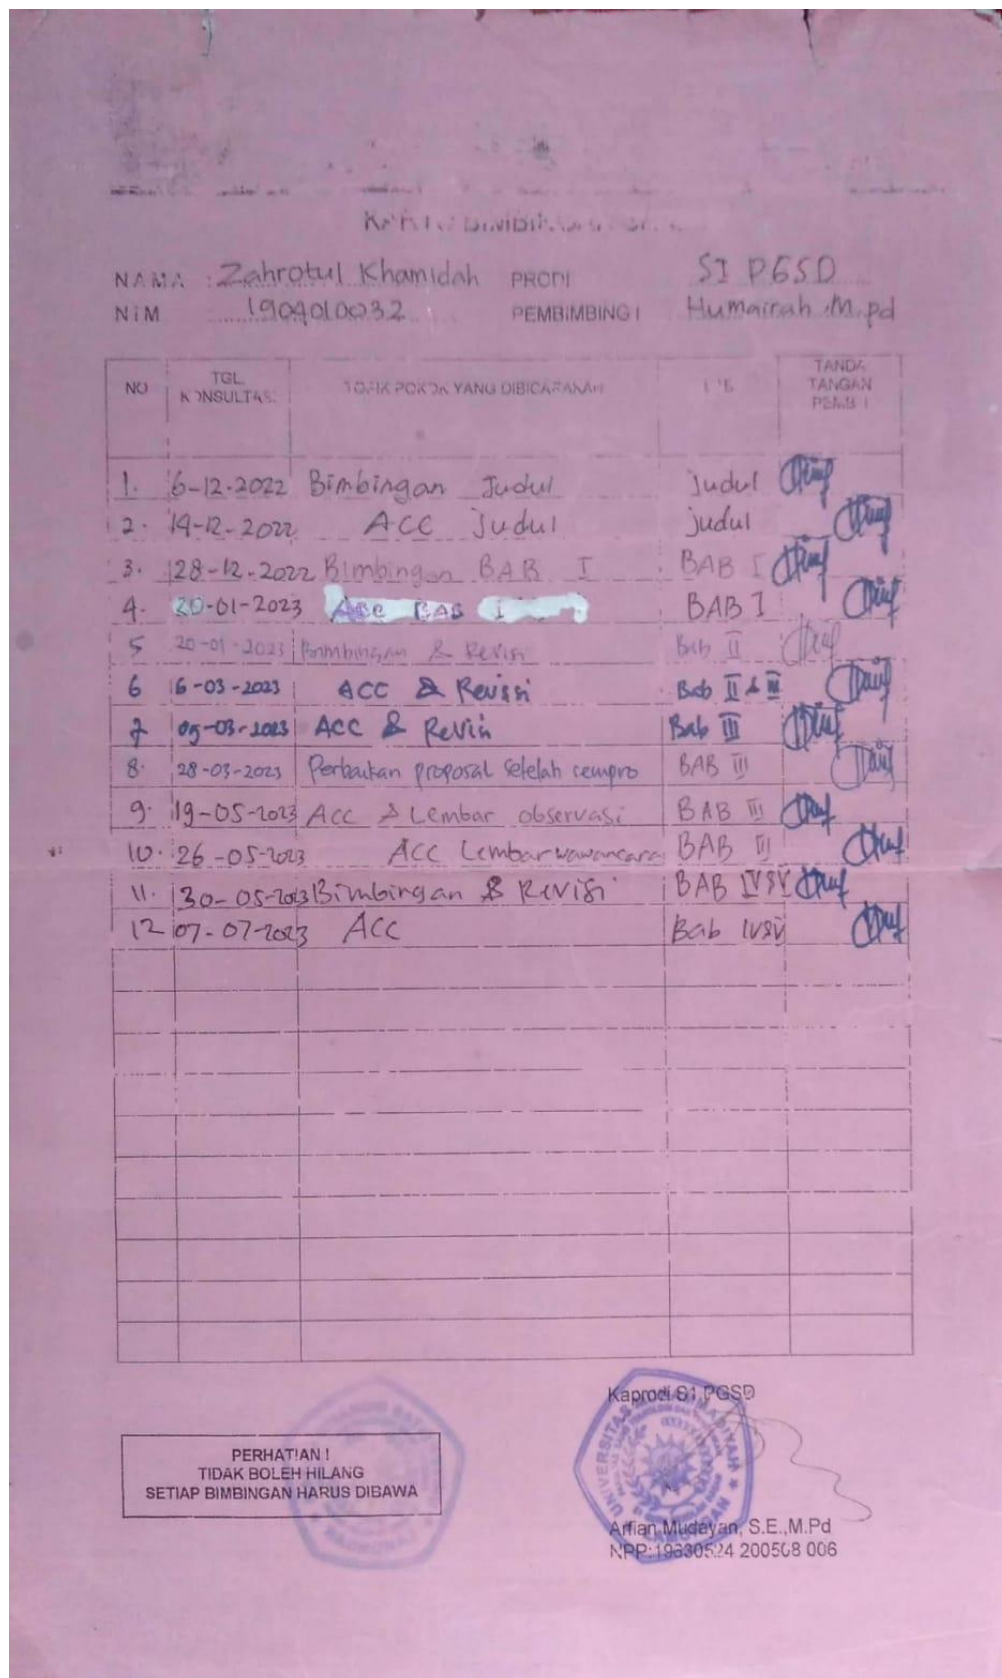 KARTU BIMBINGAN
NAMA : Zahrotul Khamidah PRODI S1 PGSD
NIM 1904010032 PEMBIMBING I Humairah .M.pd
NO TGL KONSULTASI TOPIK POKOK YANG DIBICARAKAN TANDA TANGAN PEMB I
1. 6-12-2022 Bimbingan Judul judul
2. 14-12-2022 ACC Judul judul
3. 28-12-2022 Bimbingan BAB I BAB I
4. 20-01-2023 ACC BAB I BAB I
5 20-01-2023 Bimbingan & Revisi Bab II
6 6-03-2023 ACC & Revissi Bab II & III
7 05-03-2023 ACC & Revisi Bab III
8. 28-03-2023 Perbaikan proposal setelah sempro BAB III
9. 19-05-2023 Acc & Lembar observasi BAB III
10. 26-05-2023 ACC Lembar wawancara BAB III
11. 30-05-2023 Bimbingan & Revisi BAB IV & V
12 07-07-2023 ACC Bab IV & V
Kaprodi S1 PGSD
PERHATIAN !
TIDAK BOLEH HILANG
SETIAP BIMBINGAN HARUS DIBAWA
UNIVERSITAS MUHAMMADIYAH
LAMONGAN
Arfian Mudayan, S.E.,M.Pd
NPP:19830524 200508 006